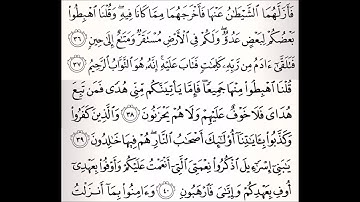 فَأَزَلَّهُمَا ٱلشَّيْطَٰنُ عَنْهَا فَأَخْرَجَهُمَا مِمَّا كَانَا فِيهِ ۖ وَقُلْنَا ٱهْبِطُوا۟
بَعْضُكُمْ لِبَعْضٍ عَدُوٌّ ۖ وَلَكُمْ فِى ٱلْأَرْضِ مُسْتَقَرٌّ وَمَتَٰعٌ إِلَىٰ حِينٍ ٣٦
فَتَلَقَّىٰٓ ءَادَمُ مِن رَّبِّهِۦ كَلِمَٰتٍ فَتَابَ عَلَيْهِ ۚ إِنَّهُۥ هُوَ ٱلتَّوَّابُ ٱلرَّحِيمُ ٣٧
قُلْنَا ٱهْبِطُوا۟ مِنْهَا جَمِيعًا ۖ فَإِمَّا يَأْتِيَنَّكُم مِّنِّى هُدًى فَمَن تَبِعَ
هُدَاىَ فَلَا خَوْفٌ عَلَيْهِمْ وَلَا هُمْ يَحْزَنُونَ ٣٨ وَٱلَّذِينَ كَفَرُوا۟
وَكَذَّبُوا۟ بِـَٔايَٰتِنَآ أُو۟لَٰٓئِكَ أَصْحَٰبُ ٱلنَّارِ ۖ هُمْ فِيهَا خَٰلِدُونَ ٣٩
يَٰبَنِىٓ إِسْرَٰٓءِيلَ ٱذْكُرُوا۟ نِعْمَتِىَ ٱلَّتِىٓ أَنْعَمْتُ عَلَيْكُمْ وَأَوْفُوا۟ بِعَهْدِىٓ
أُوفِ بِعَهْدِكُمْ وَإِيَّٰىَ فَٱرْهَبُونِ ٤٠ وَءَامِنُوا۟ بِمَآ أَنزَلْتُ